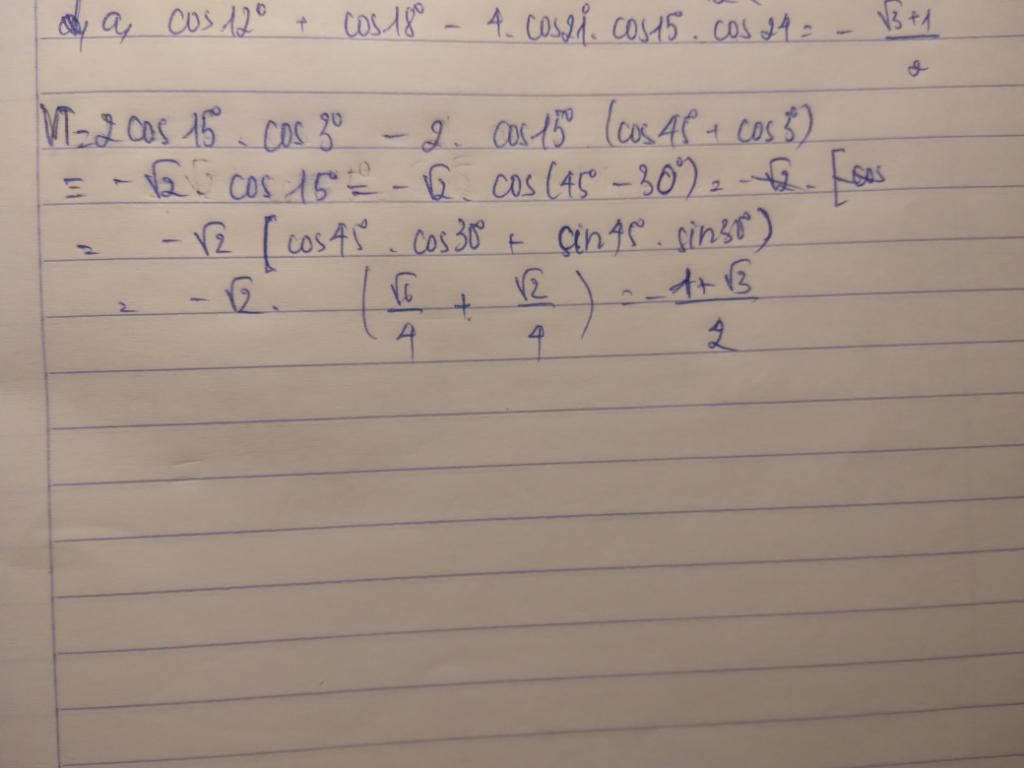 a, cos12° + cos18° - 4. cos21°. cos15. cos24 = - √3+1/2
VT = 2cos15°. cos3° - 2. cos15° (cos45° + cos3°)
= -√2 cos15° = -√2. cos(45° - 30°) = -√2. [cos
= -√2 [cos45°. cos30° + sin45°. sin30°)
= -√2. (√6/4 + √2/4) = - 1+√3/2